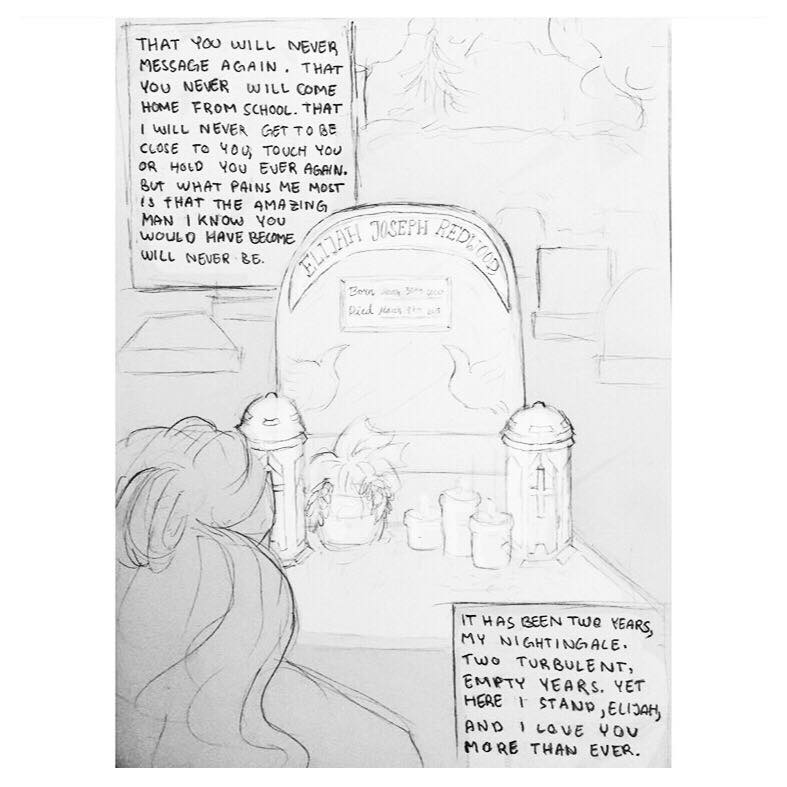 THAT YOU WILL NEVER
MESSAGE AGAIN. THAT
YOU NEVER WILL COME
HOME FROM SCHOOL. THAT
I WILL NEVER GET TO BE
CLOSE TO YOU, TOUCH YOU
OR HOLD YOU EVER AGAIN.
BUT WHAT PAINS ME MOST
IS THAT THE AMAZING
MAN I KNOW YOU
WOULD HAVE BECOME
WILL NEVER BE.
ELIJAH JOSEPH REDWOOD
Born
Died
IT HAS BEEN TWO YEARS,
MY NIGHTINGALE.
TWO TURBULENT,
EMPTY YEARS. YET
HERE I STAND, ELIJAH,
AND I LOVE YOU
MORE THAN EVER.